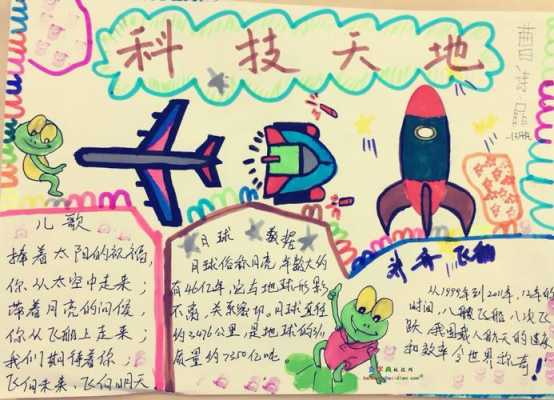 科技天地
儿歌
捧着太阳的祝福,
你,从太空中走来;
带着月亮的问候,
你从飞船上走来;
我们期待着你;
飞向未来、飞向明天
月球 数据
月球俗称月亮,年数大约
有46亿年,它与地球形影
不离,关系密切,月球直径
约3476公里,是地球的3/11
质量约7350亿吨
神舟飞船
从1999年到2011年,12年的
时间,八艘飞船,八次飞
跃,我国载人航天的速度
和效率令世界称奇!